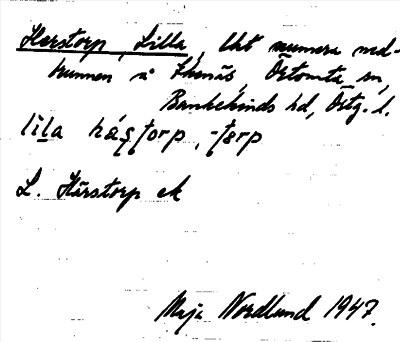 Herstorp, Lilla, lht numera ned-
brunnen å Ekenäs, Örtomta sn,
Bankekinds hd, Östg. l.
lila hásţorp, -ţərp
L. Härstorp ek
Maja Nordlund 1947.